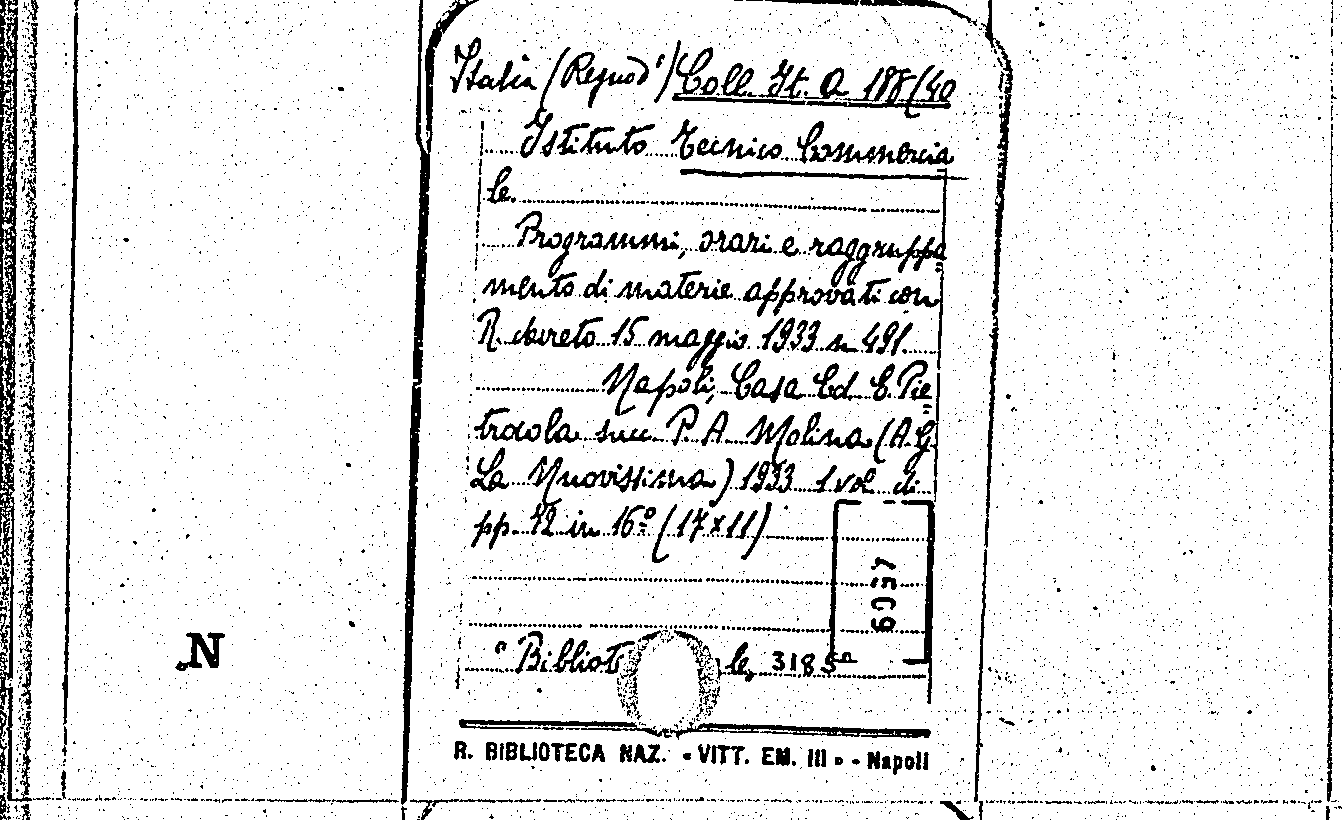 Italia (Regno d') Coll. It. A 188/40
Istituto Tecnico Commercia
le.
Programmi, orari e raggruppa
mento di materie approvati con
R. decreto 15 maggio 1933 n 491.
Napoli, Casa Ed. E. Pie
trocola succ. P. A. Molina (A.G.
La Nuovissima) 1933 1 vol. di
pp. 72 in 16º (17x11)
6037
N
" Bibliot le, 3185"
R. BIBLIOTECA NAZ. « VITT. EM. III » - Napoli